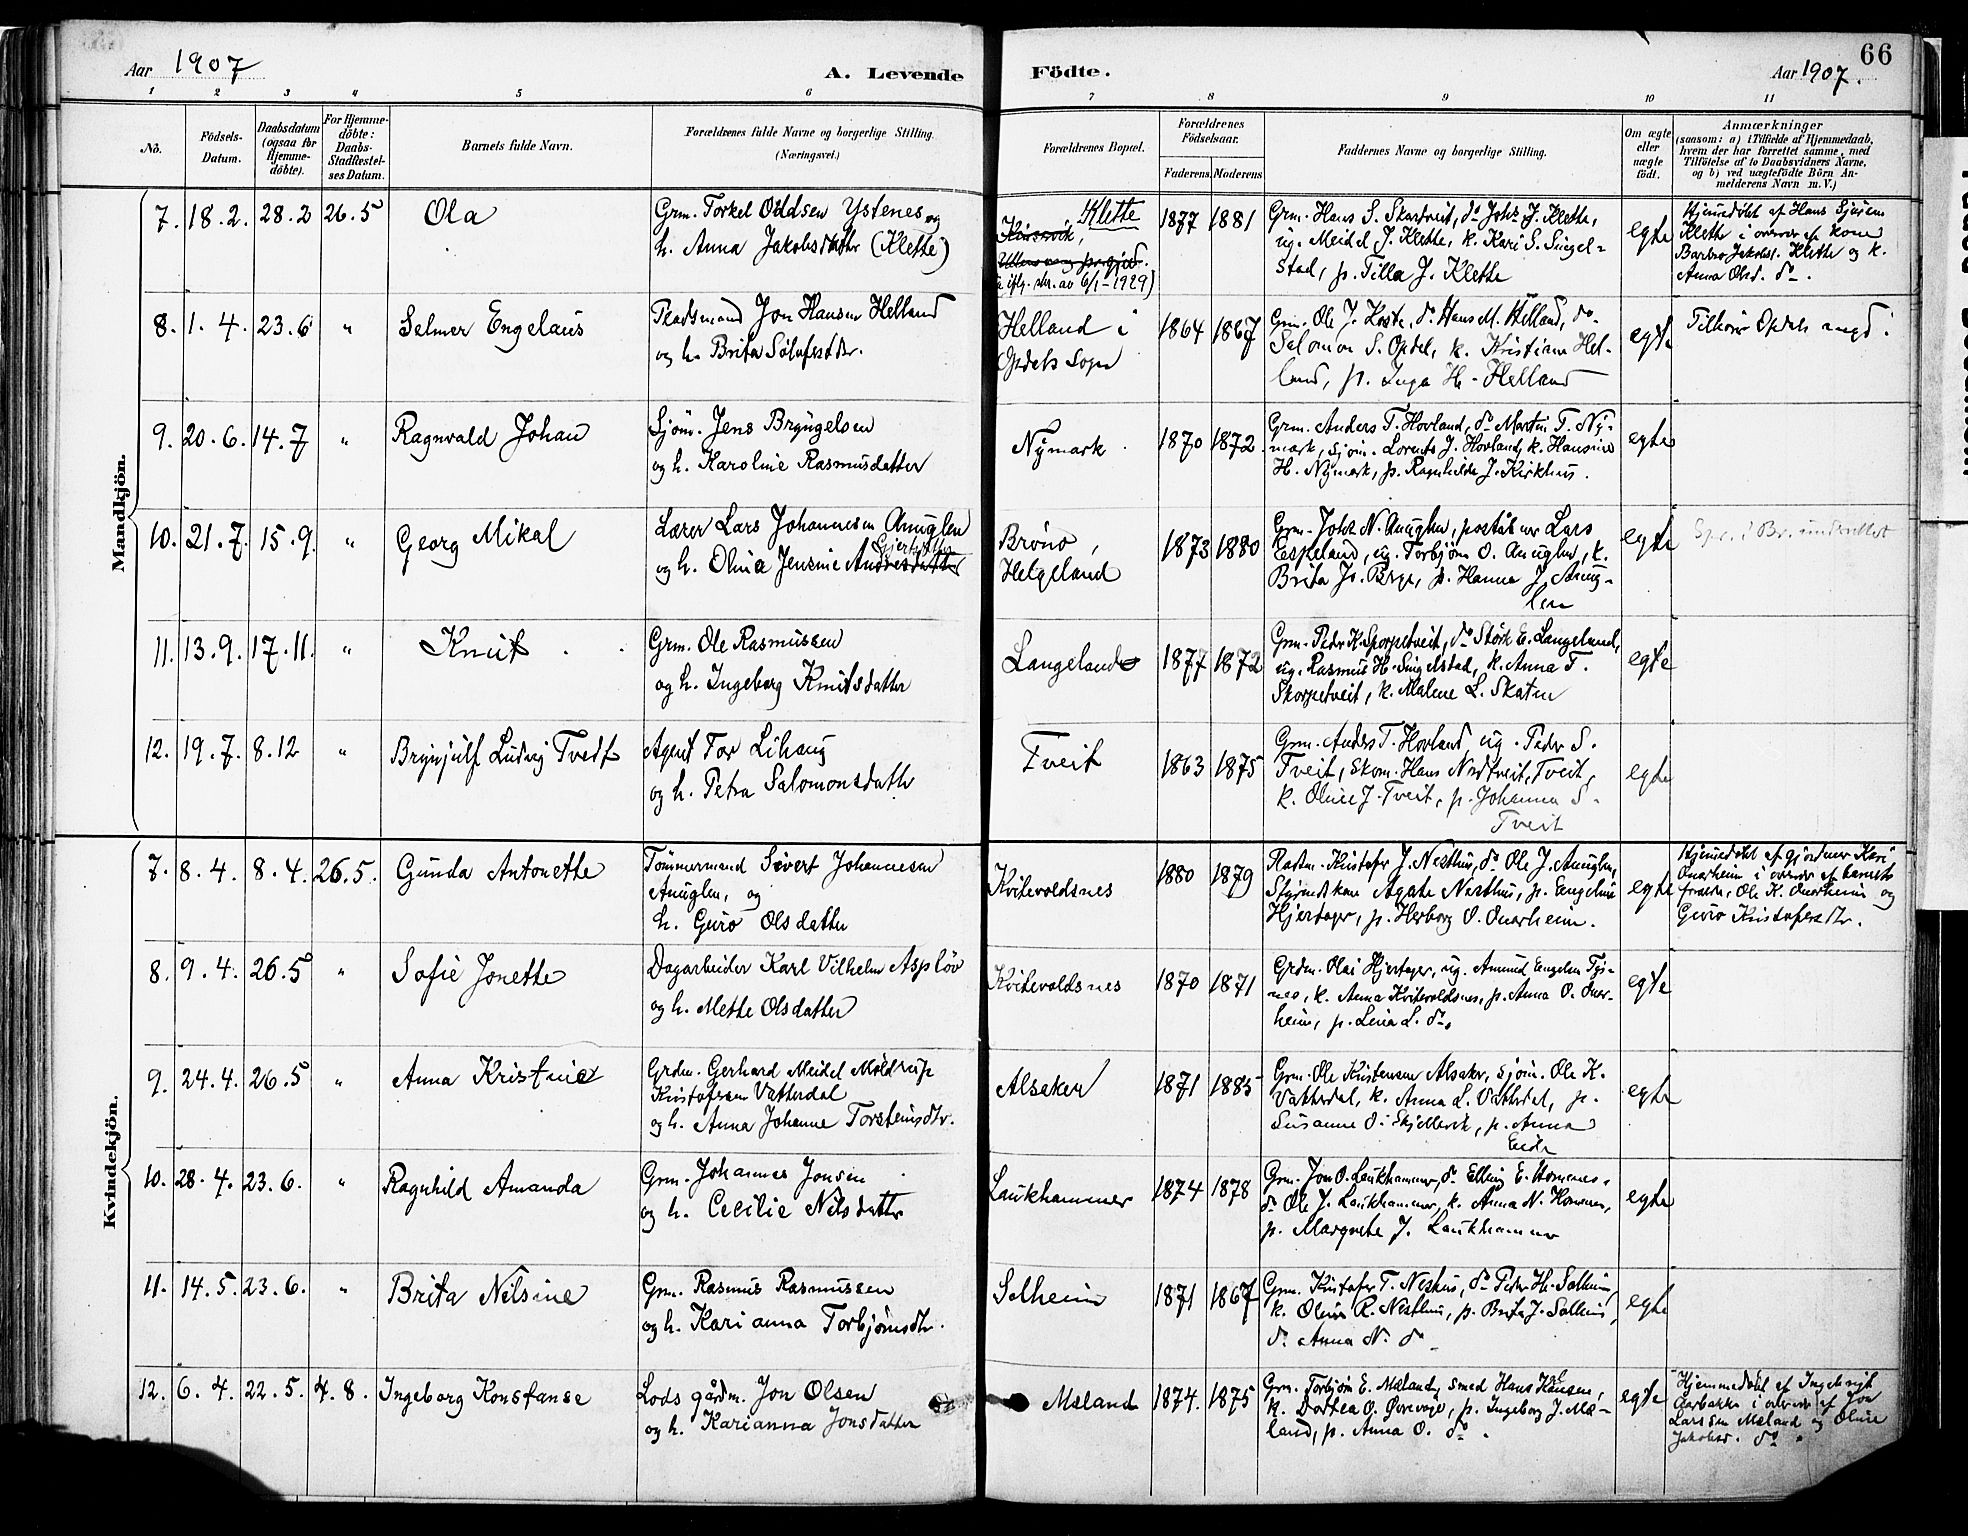 66
Aar 1907
A. Levende Födte.
Aar 1907.
1 2 3 4 5 6 7 8 9 10 11
No.
Födsels-
Datum.
Daabsdatum
(ogsaa for
Hjemme-
döbte).
For Hjemme-
döbte:
Daabs-
Stadfæstel-
ses Datum.
Barnets fulde Navn.
Forældrenes fulde Navne og borgerlige Stilling.
(Næringsvei.)
Forældrenes Bopæl.
Forældrenes
Födselsaar.
Faderens. Moderens
Faddernes Navne og borgerlige Stilling.
Om ægte
eller
uægte
födt.
Anmærkninger
(saasom: a) i Tilfælde af Hjemmedaab,
hvem der har forrettet samme, med
Tilföielse af to Daabsvidners Navne,
og b) ved uægtefödte Börn An-
melderens Navn m. V.)
Mandkjön.
7. 18.2. 28.2 26.5 Ola
Grm. Torkel Oddsen Ystenes og
h. Anna Jakobsdatter (Klette)
Klette
(iflg. skr. av 6/1-1929)
1877 1881
Grm. Hans S. Skartveit, do Johs J. Klette,
ug. Meidel J. Klette, k. Kari S. Singel-
stad, p. Tilla J. Klette
egte
Hjemmedöbt af Hans Sjursen
Klette i overvær af kone
Barbro Jakobsd. Klette og k.
Anna Olsd. do.
8. 1.4. 23.6 " Selmer Engelaus
Pladsmand Jon Hansen Helland
og h. Brita Sølfestdtr.
Helland i
Opdals Sogn
1864 1867
Grm. Ole J. Koste, do Hans M. Helland, do.
Salomon S. Opdal, k. Kristiane Hel-
land, p. Inga H. Helland
egte
Tilhører Opdals sogn
9. 20.6. 14.7 " Ragnvald Johan
Sjøm. Jens Bryngelsen
og h. Karoline Rasmusdatter
Nymark
1870 1872
Grm. Anders T. Hovland, do Martin T. Ny-
mark, sjøm. Lorents J. Hovland, k. Hansine
H. Nymark, p. Ragnhilda J. Kirkhus.
egte
10. 21.7. 15.9. " Georg Mikal
Lærer Lars Johannesen Anuglen
og h. Olina Jensine Andersdatter
Brønø,
Helgeland
1873 1880
Grm. Johs N. Anuglen, poståbner Lars
Espeland, ug. Torbjørn O. Anuglen, k.
Brita Jo. Berge, p. Hanna J. Anug-
len
egte
11. 13.9. 17.11. " Knut
Grm. Ole Rasmussen
og h. Ingeborg Knutsdatter
Langeland
1877 1872
Grm. Peder K. Skorpetveit, do Størk E. Langeland,
ug. Rasmus H. Singelstad, k. Anna T.
Skorpetveit, k. Malene L. Skaten
egte
12. 19.7. 8.12 " Brynjulf Ludvig Tvedt
Agent Tor Lihaug
og h. Petra Salomonsdatter
Tveit
1863 1875
Grm. Anders T. Hovland, ug. Peder S.
Tveit, Skom. Hans Nedtveit, Tveit,
k. Oline J. Tveit, p. Johanna S.
Tveit
egte
Kvindekjön.
7. 8.4. 8.4. 26.5. Gunda Antonette
Tømmermand Sivert Johannesen
Anuglen, og
h. Guro Olsdatter
Kvitevoldsnes
1880 1879
Kristofer J. Nesthus, do Ole J. Anuglen,
Agate Nesthus, p. Engeline
Hjertager, p. Herborg O. Onarheim.
egte
Hjemmedöbt af gjordmor Kari
Onarheim i overvær af barnets
forældre, Ole K. Onarheim og
Guro Kristofersdtr.
8. 9.4. 26.5 " Sofie Jonette
Dagarbeider Karl Vilhelm Aspløv
og h. Mette Olsdatter
Kvitevoldsnes
1870 1871
Grdm. Olai Hjertager, ug. Amund Engelsen Tys-
nes, k. Anna Kvitevoldsnes, p. Anna O. Onar-
heim, p. Lina L. do.
egte
9. 24.4. 26.5 " Anna Kristine
Grdm. Gerhard Meidel Møldrup
Kristofersen Vatterdal
og h. Anna Johanne Torsteinsdtr.
Alsaker
1871 1885
Grm. Ole Kristensen Alsaker, sjøm. Ole K.
Vatterdal, k. Anna L. Vatterdal, p.
Susanne O. Skjellevik, p. Anna
Eide
egte
10. 28.4. 23.6. " Ragnhild Amanda
Grm. Johannes Jonsen
og h. Cecilie Nilsdatter
Laukhammer
1874 1878
Grm. Jon O. Laukhammer, do Elling E. Hovenes.
do Ole J. Laukhammer, k. Anna N. Hovenes,
p. Margrete J. Laukhammer
egte
11. 14.5. 23.6. " Brita Nilsine
Grm. Rasmus Rasmussen
og h. Karianna Torbjørnsdtr.
Solheim
1871 1867
Grm. Kristofer T. Nesthus, do Peder H. Solheim,
k. Oline R. Nesthus, p. Brita J. Solheim,
do. Anna N. do
egte
12. 6.4. 22.5. 4.8. Ingeborg Konstanse
Lods gårdm. Jon Olsen
og h. Karianna Jonsdatter
Mæland
1874. 1875
Grm. Torbjørn E. Mæland, smed Hans Hansen,
k. Dortea O. Gjerevoge, p. Ingeborg J. Mæ-
land, p. Anna O. do.
egte
Hjemmedöbt af Ingebrigt
Aarbakke i overvær af Jon
Larssen Mæland og Oline
Jakobsd. do